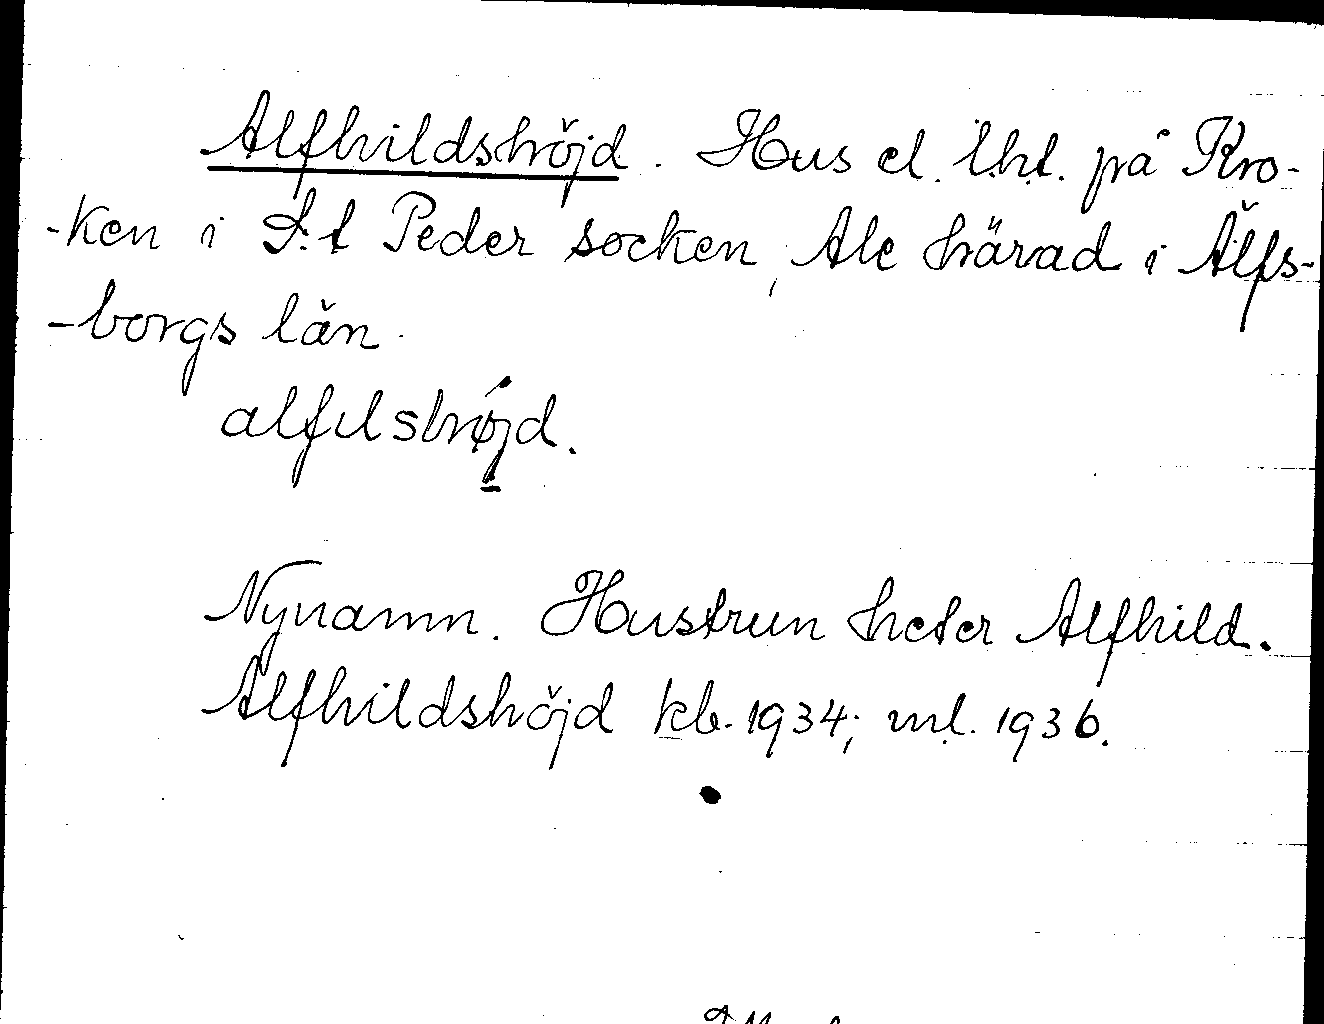 Alfhildshöjd. Hus el. lht. på Kro-
-ken i S:t Peder socken, Ale härad i Älfs-
-borgs län.
alfɩlshøjd.
Nynamn. Hustrun heter Alfhild.
Alfhildshöjd kb. 1934; ml. 1936.